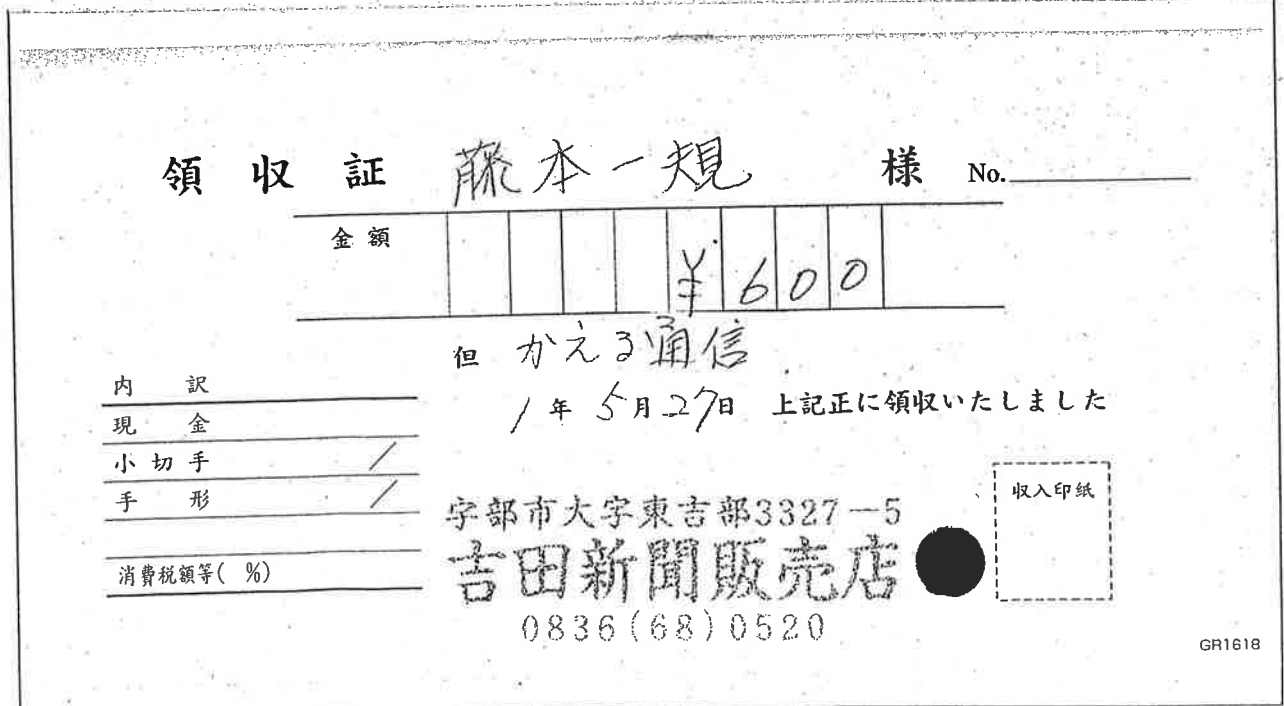 領収証 藤本一規 様 No.
金額 ¥600
但 かえる通信
1年5月27日 上記正に領収いたしました
内訳
現金
小切手 /
手形 /
消費税額等( %)
宇部市大字東吉部3327-5
吉田新聞販売店
0836(68)0520
収入印紙
GR1618